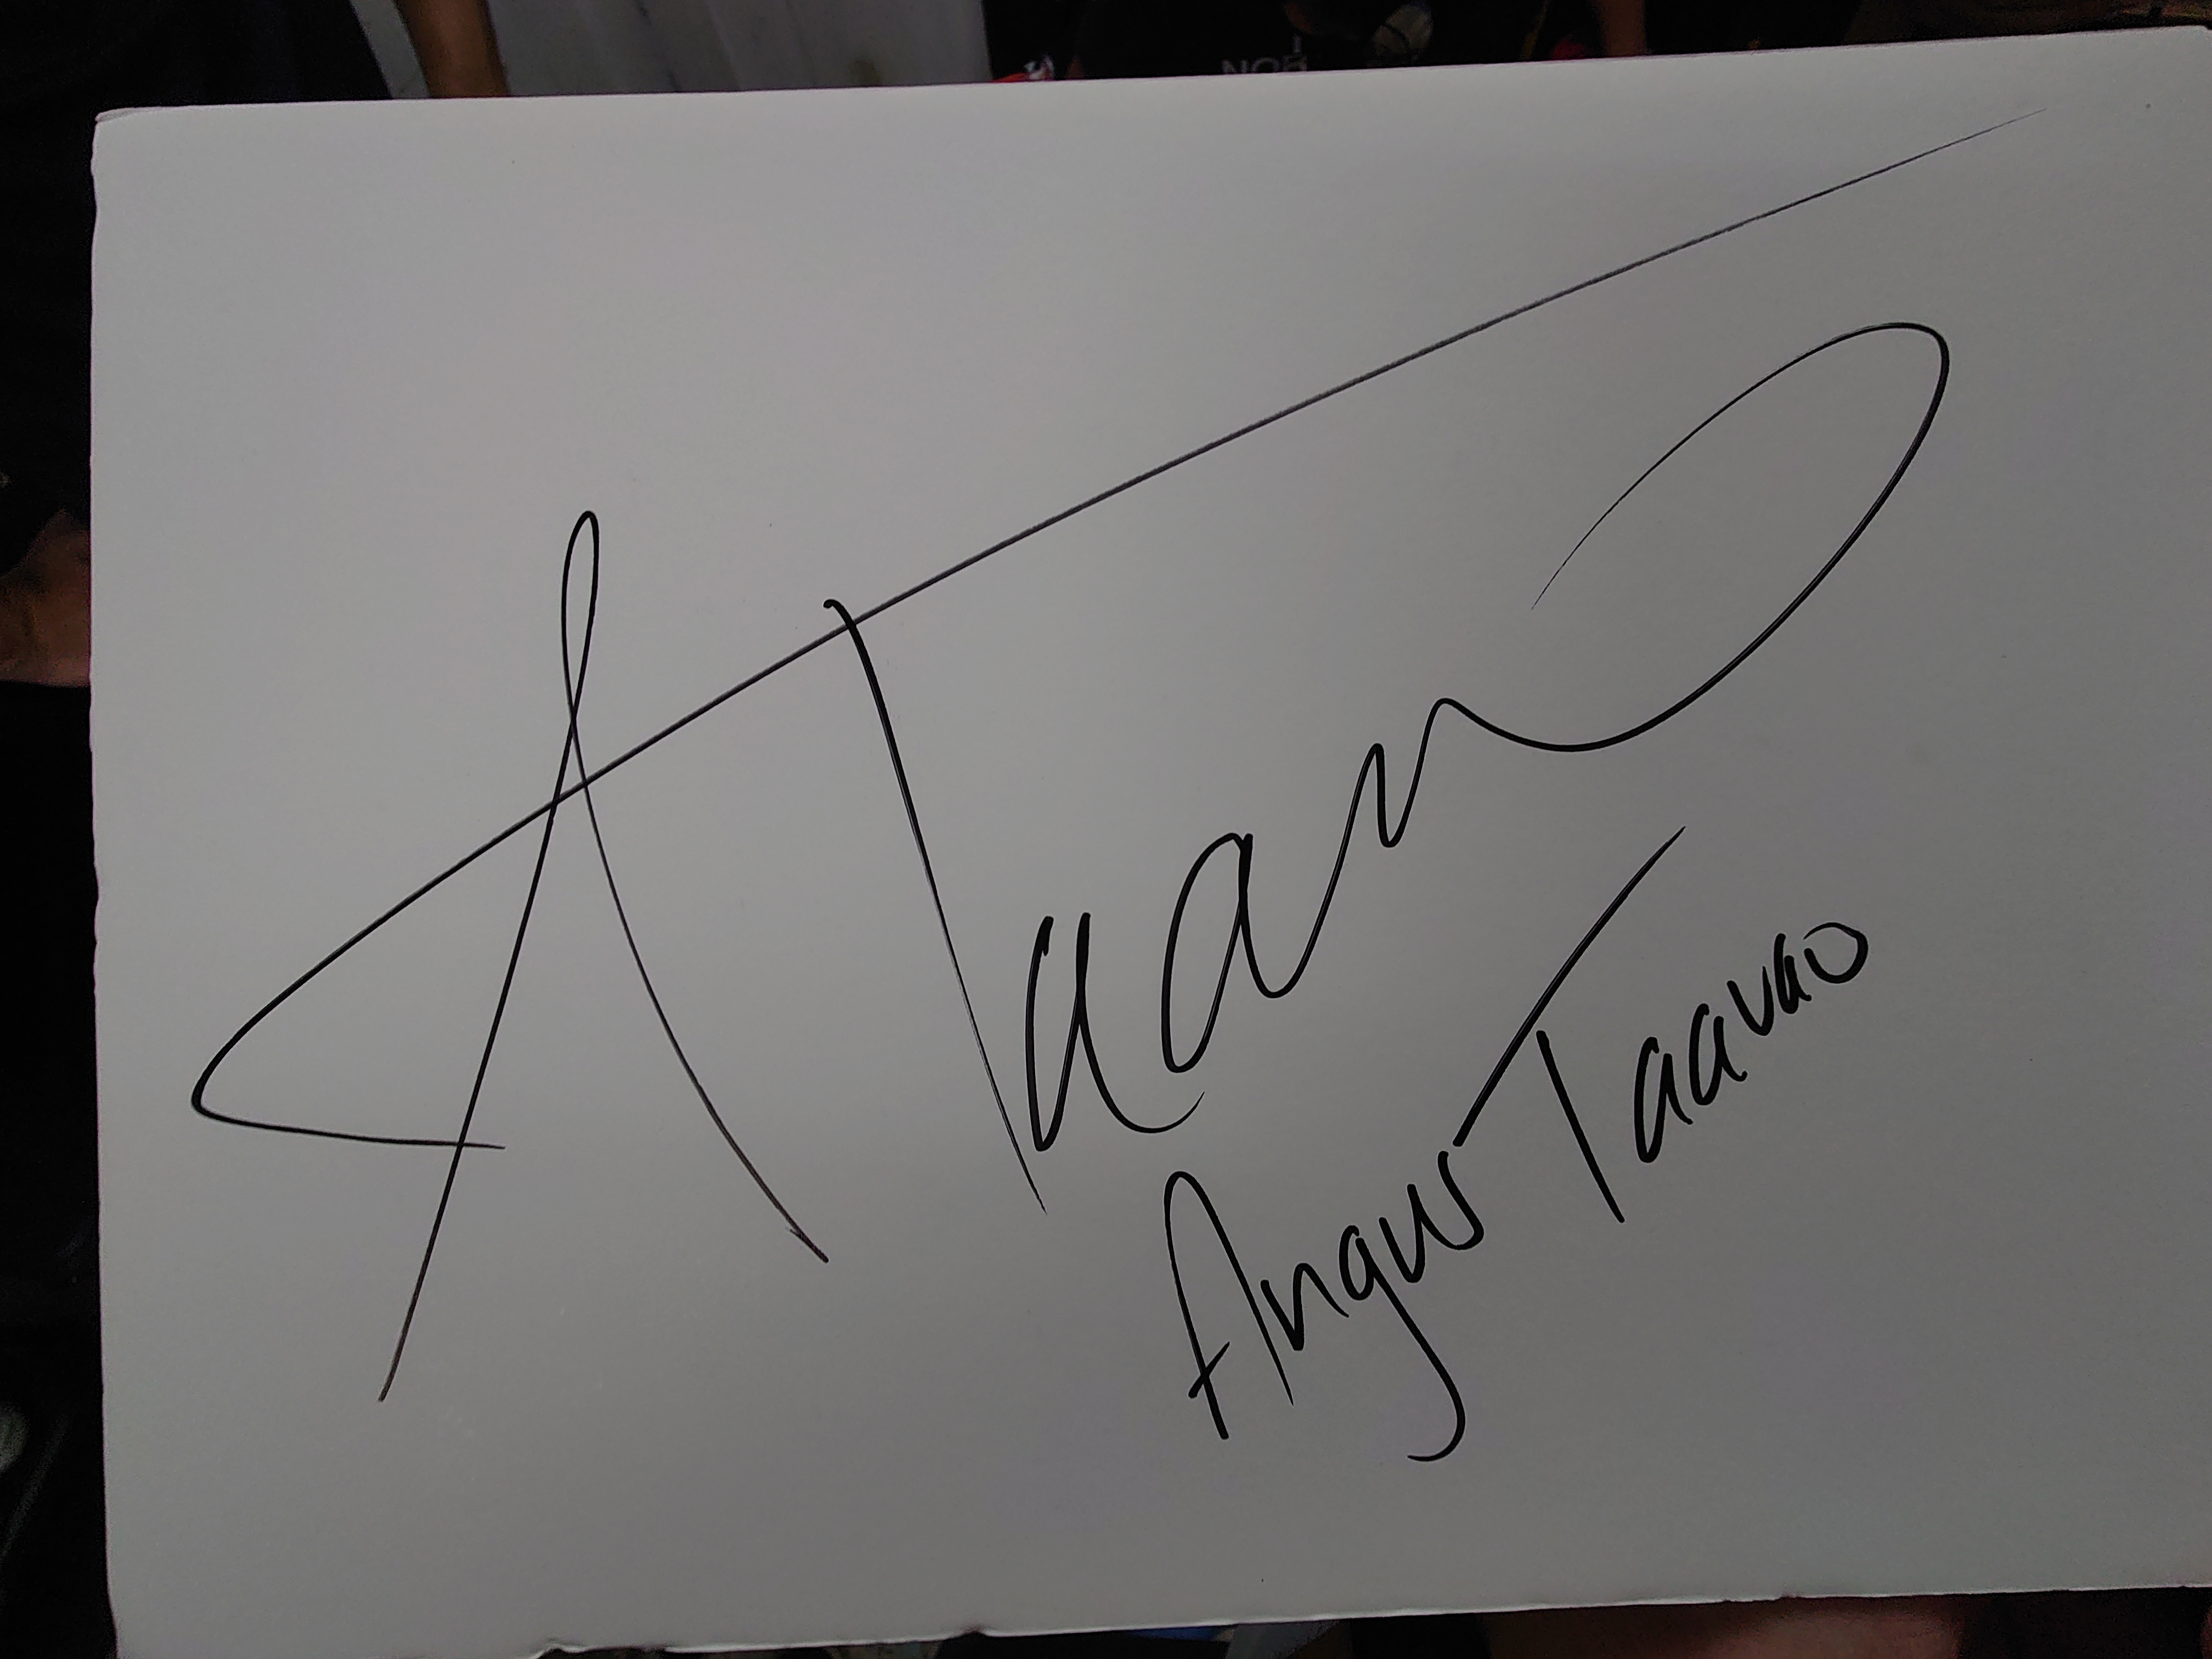 ATaav
Angus Taavao